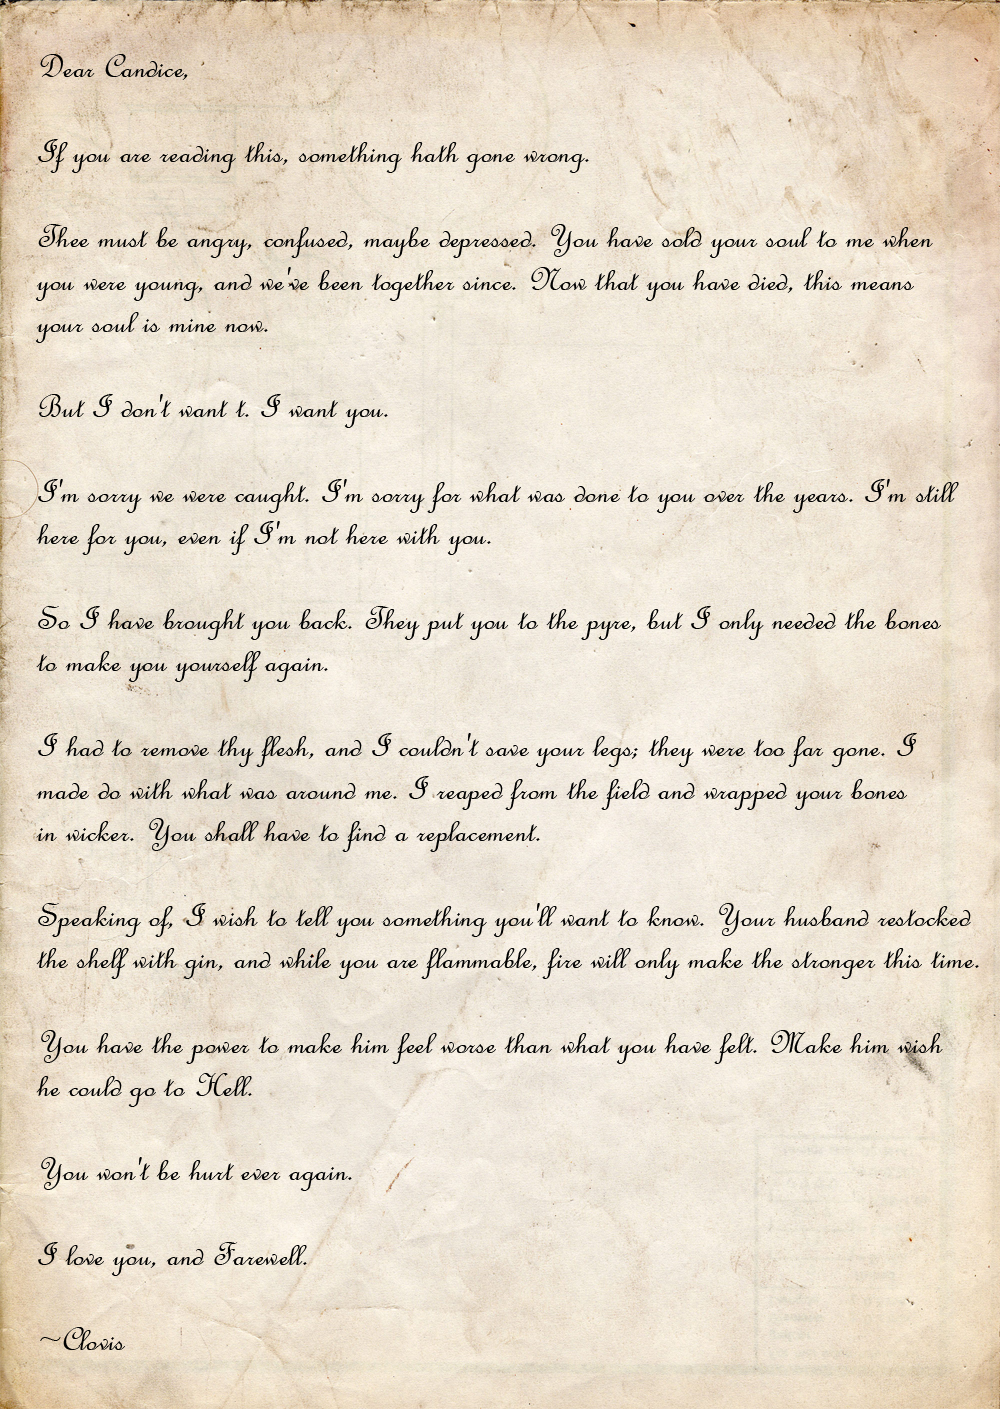 Dear Candice,
If you are reading this, something hath gone wrong.
Thee must be angry, confused, maybe depressed. You have sold your soul to me when
you were young, and we've been together since. Now that you have died, this means
your soul is mine now.
But I don't want t. I want you.
I'm sorry we were caught. I'm sorry for what was done to you over the years. I'm still
here for you, even if I'm not here with you.
So I have brought you back. They put you to the pyre, but I only needed the bones
to make you yourself again.
I had to remove thy flesh, and I couldn't save your legs; they were too far gone. I
made do with what was around me. I reaped from the field and wrapped your bones
in wicker. You shall have to find a replacement.
Speaking of, I wish to tell you something you'll want to know. Your husband restocked
the shelf with gin, and while you are flammable, fire will only make the stronger this time.
You have the power to make him feel worse than what you have felt. Make him wish
he could go to Hell.
You won't be hurt ever again.
I love you, and Farewell.
~Clovis